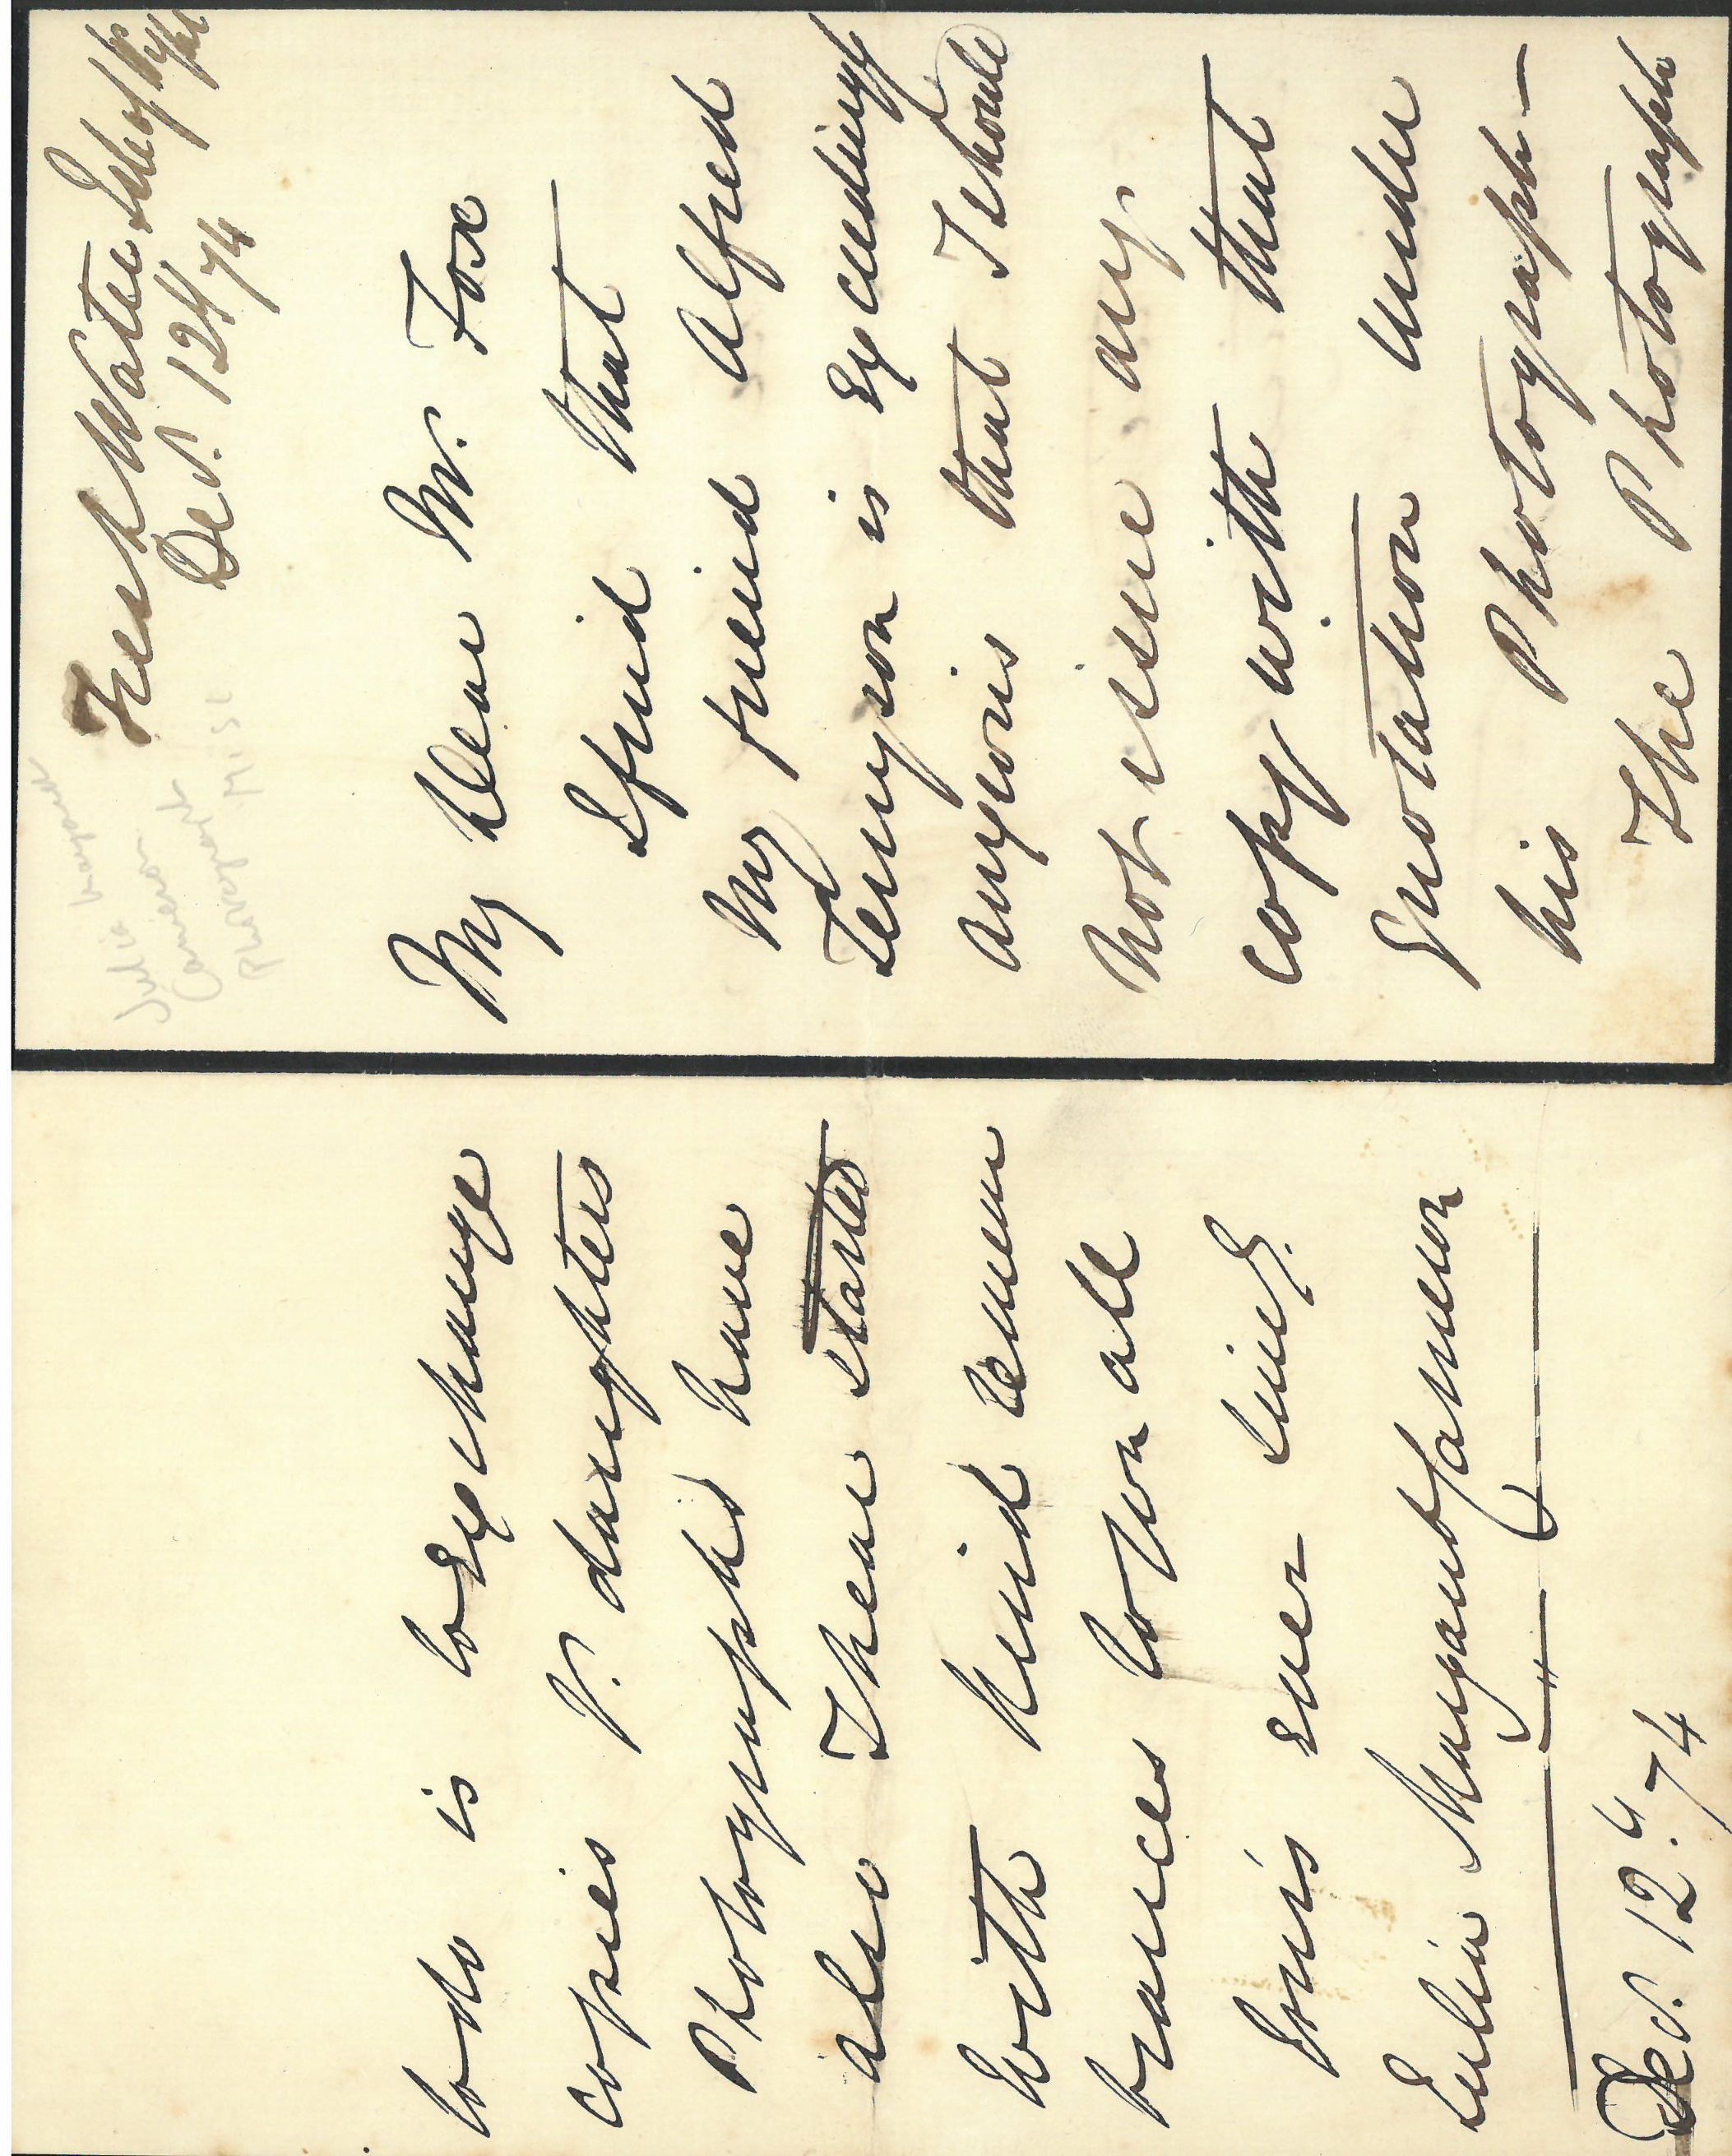 Julia Margaret
Cameron
Photograph
Misc
Fresh Water Isle of Wight
Decr. 12th/74
My Dear Mr. Fox
I find that
my friend Alfred
Tennyson is Exceedingly
anxious that I should
not issue any
copy with that
Quotation under
his Photograph —
The Photograph
to do is to Exchange
copies Yr. daughters
Photographs have
also I hear started
With kind remem
brances to you all
Yours Ever
Julia Margaret Cameron
Decr. 12th/74